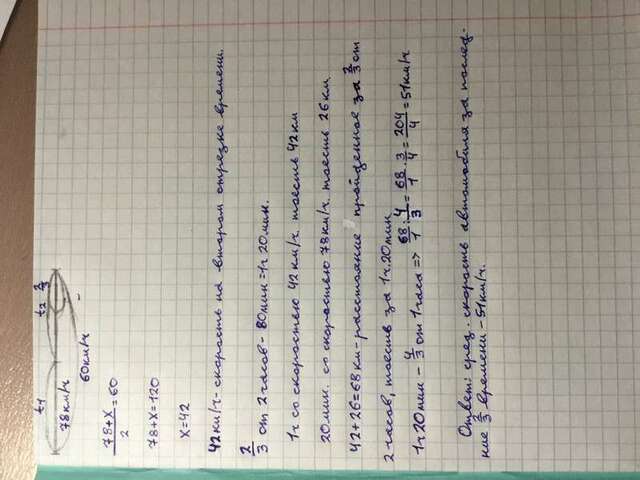 t1 t2 2/3
78км/ч
60км/ч
78+x/2 = 60
78+x=120
x=42
42км/ч- скорость на втором отрезке времени.
2/3 от 2 часов - 80мин=1ч 20мин.
1ч со скоростью 42 км/ч. тоесть 42км
20мин. со скоростью 78км/ч. тоесть 26км.
42+26=68км-расстояние пройденное за 2/3 от
2 часов, тоесть за 1ч.20мин
1ч20мин - 4/3 от 1часа => 68/1 : 4/3 = 68/1 · 3/4 = 204/4 = 51км/ч
Ответ: сред. скорость автомобиля за послед-
ние 2/3 времени - 51км/ч.